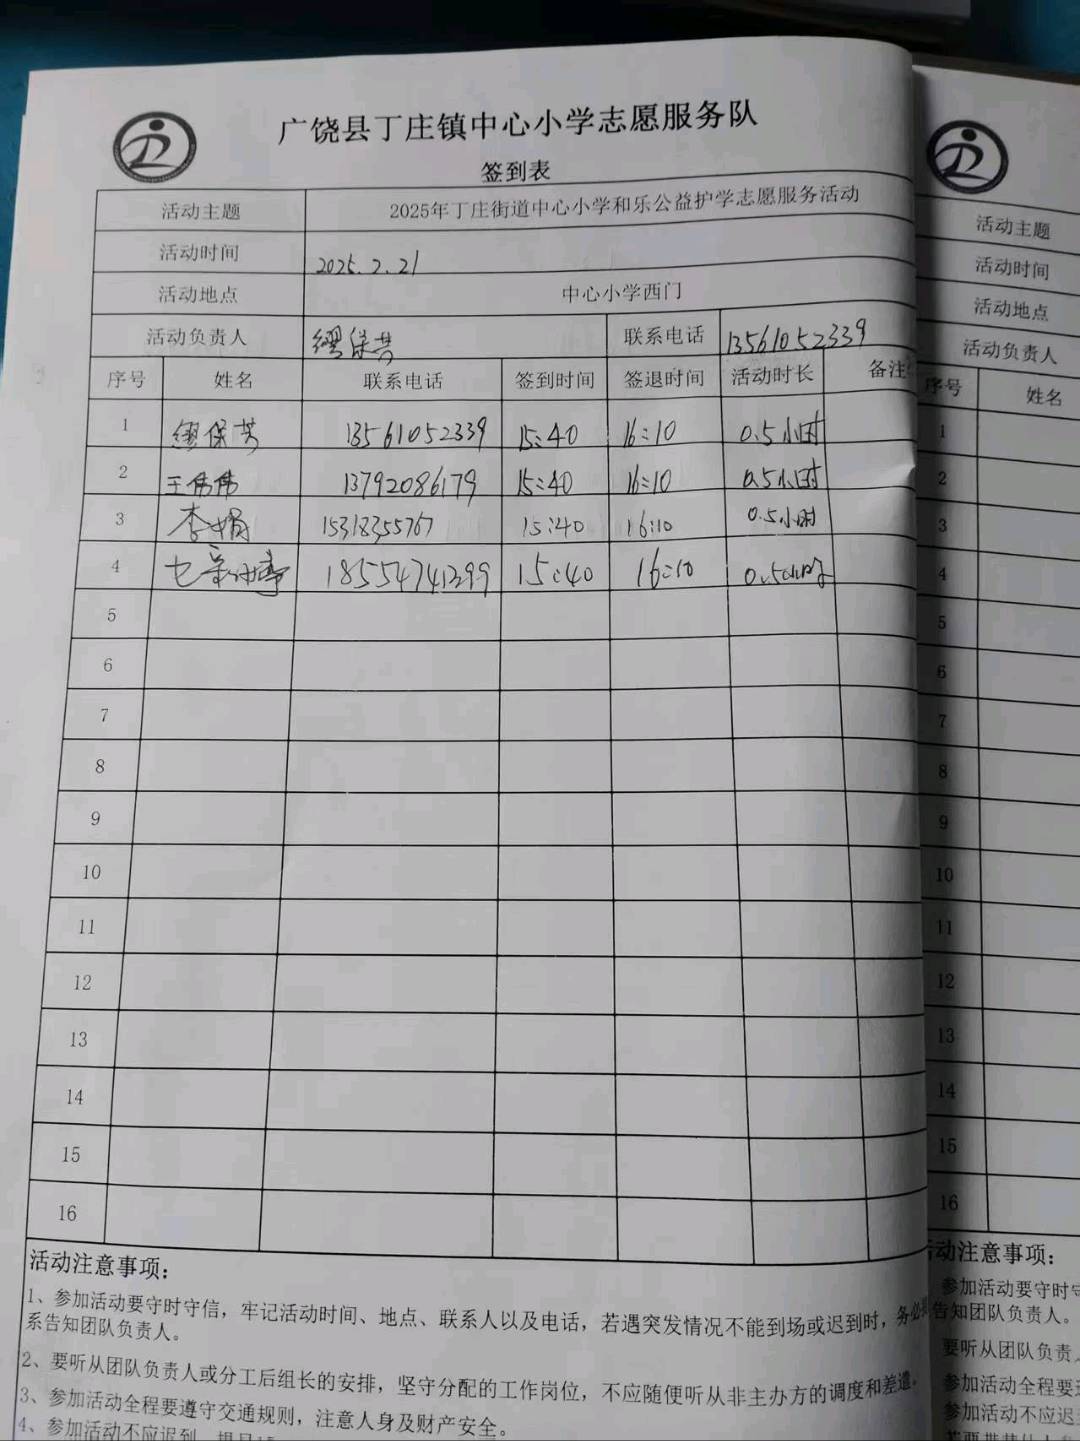 广饶县丁庄镇中心小学志愿服务队
签到表
活动主题 2025年丁庄街道中心小学和乐公益护学志愿服务活动
活动时间 2025.2.21
活动地点 中心小学西门
活动负责人 缪保芸 联系电话 13561052339
序号 姓名 联系电话 签到时间 签退时间 活动时长 备注
1 缪保芸 13561052339 15:40 16:10 0.5小时
2 王伟伟 13792086179 15:40 16:10 0.5小时
3 李娟 15318355767 15:40 16:10 0.5小时
4 18554741399 15:40 16:10 0.5小时
5
6
7
8
9
10
11
12
13
14
15
16
活动注意事项：
1、参加活动要守时守信，牢记活动时间、地点、联系人以及电话，若遇突发情况不能到场或迟到时，务必
系告知团队负责人。
2、要听从团队负责人或分工后组长的安排，坚守分配的工作岗位，不应随便听从非主办方的调度和差遣。
3、参加活动全程要遵守交通规则，注意人身及财产安全。
4、参加活动不应迟到
活动主题
活动时间
活动地点
活动负责人
序号 姓名
1
2
3
4
5
6
7
8
9
10
11
12
13
14
15
16
活动注意事项：
参加活动要守时
告知团队负责人。
要听从团队负责
参加活动全程要
参加活动不应迟